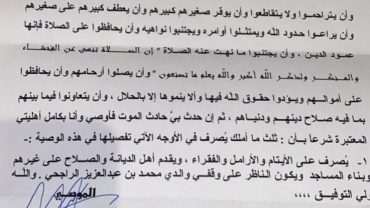 وأن يتراحموا ولا يتقاطعوا وأن يوقر صغيرهم كبيرهم وأن يعطف كبيرهم على صغيرهم
وأن يراعوا حدود الله ويمتثلوا أوامره ويجتنبوا نواهيه وأن يحافظوا على الصلاة فإنها
عمود الدين ، وأن يجتنبوا ما نهت عنه الصلاة " إن الصلاة تنهى عن الفحشاء
والمنكر ولذكر الله أكبر والله يعلم ما تصنعون " وأن يصلوا أرحامهم وأن يحافظوا
على أموالهم ويؤدوا حقوق الله فيها وألا ينموها إلا بالحلال ، وأن يتعاونوا فيما بينهم
بما فيه صلاح دينهم ودنياهم ، ثم إن حدث بيَّ حادث الموت فأوصي وأنا بكامل أهليتي
المعتبرة شرعاً بأن : ثلث ما أملك يُصرف في الأوجه الآتي تفصيلها في هذه الوصية :ـ
١ـ يُصرف على الأيتام والأرامل والفقراء ، ويقدم أهل الديانة والصلاح على غيرهم
وبناء المساجد ويكون الناظر على وقفي والدي محمد بن عبدالعزيز الراجحي . والله
ولي التوفيق ،،،،
الموصي